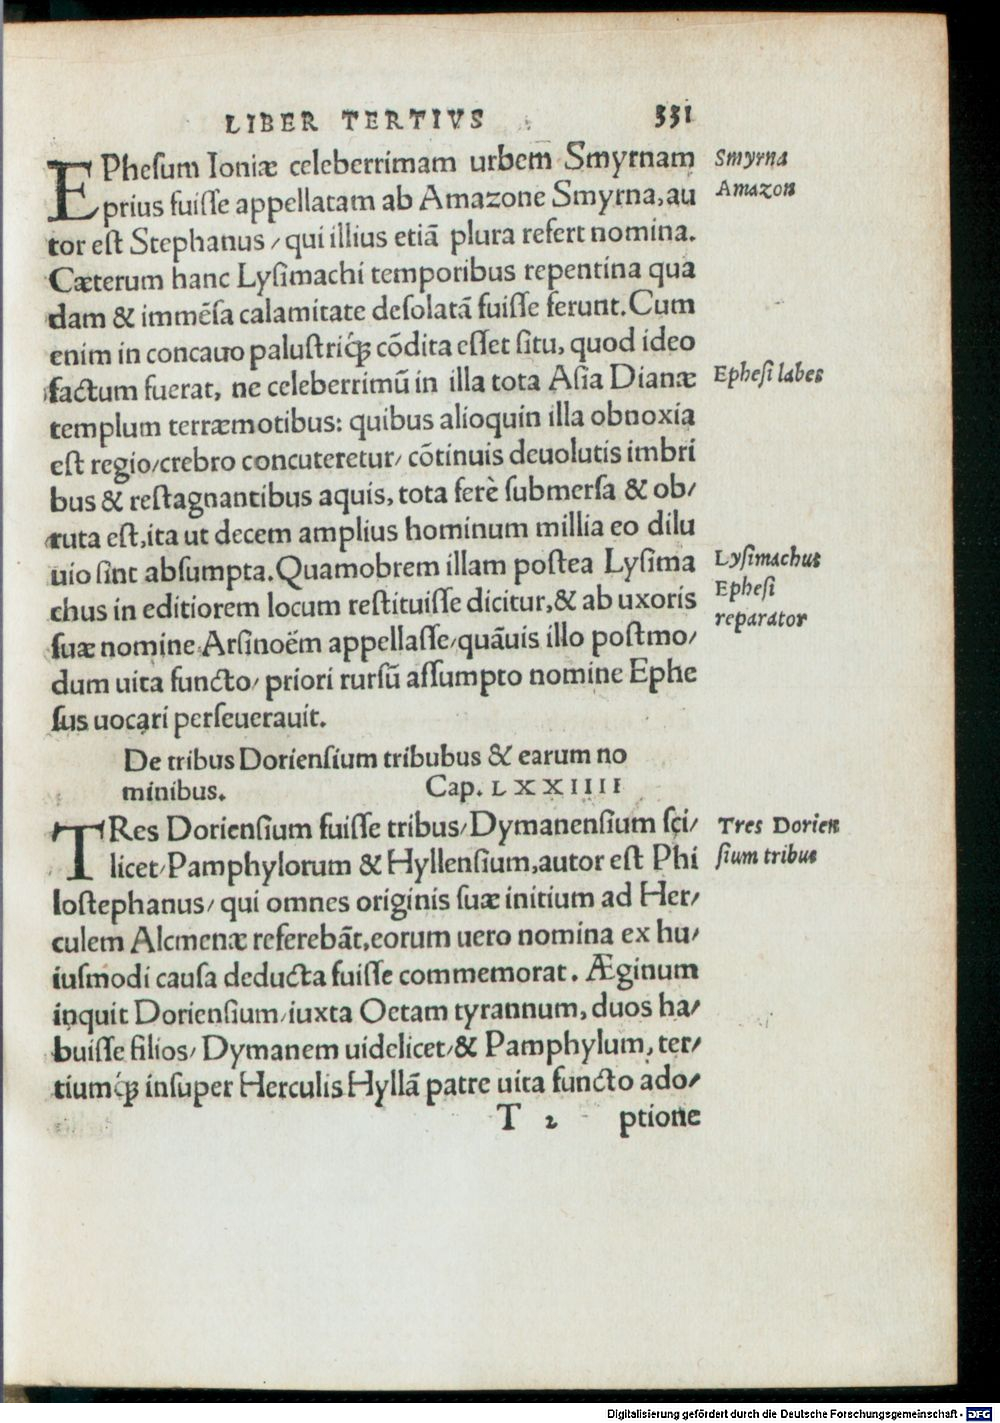 LIBER TERTIVS 331
EPheſum Ioniæ celeberrimam urbem Smyrnam
Smyrna
prius fuiſſe appellatam ab Amazone Smyrna, au
Amazon
tor eſt Stephanus / qui illius etiã plura refert nomina.
Cæterum hanc Lyſimachi temporibus repentina qua
dam & immẽſa calamitate deſolatã fuiſſe ferunt. Cum
enim in concauo paluſtriq́ꝫ cõdita eſſet ſitu, quod ideo
factum fuerat, ne celeberrimũ in illa tota Aſia Dianæ
Epheſi labes
templum terræmotibus: quibus alioquin illa obnoxia
eſt regio/crebro concuteretur/ cõtinuis deuolutis imbri
bus & reſtagnantibus aquis, tota ferè ſubmerſa & ob/
ruta eſt, ita ut decem amplius hominum millia eo dilu
uio ſint abſumpta. Quamobrem illam poſtea Lyſima
Lyſimachus
chus in editiorem locum reſtituiſſe dicitur, & ab uxoris
Epheſi
ſuæ nomine Arſinoëm appellaſſe/quãuis illo poſtmo/
reparator
dum uita functo/ priori rurſũ aſſumpto nomine Ephe
ſus uocari perſeuerauit.
De tribus Dorienſium tribubus & earum no
minibus. Cap. LXXIIII
TRes Dorienſium fuiſſe tribus/ Dymanenſium ſci/
Tres Dorien
licet/ Pamphylorum & Hyllenſium, autor eſt Phi
ſium tribus
loſtephanus/ qui omnes originis ſuæ initium ad Her/
culem Alcmenæ referebãt, eorum uero nomina ex hu/
iuſmodi cauſa deducta fuiſſe commemorat. Æginum
inquit Dorienſium/iuxta Oetam tyrannum, duos ha/
buiſſe filios/ Dymanem uidelicet/& Pamphylum, ter/
tiumq́ꝫ inſuper Herculis Hyllã patre uita functo ado/
T 2 ptione
Digitalisierung gefördert durch die Deutsche Forschungsgemeinschaft - DFG